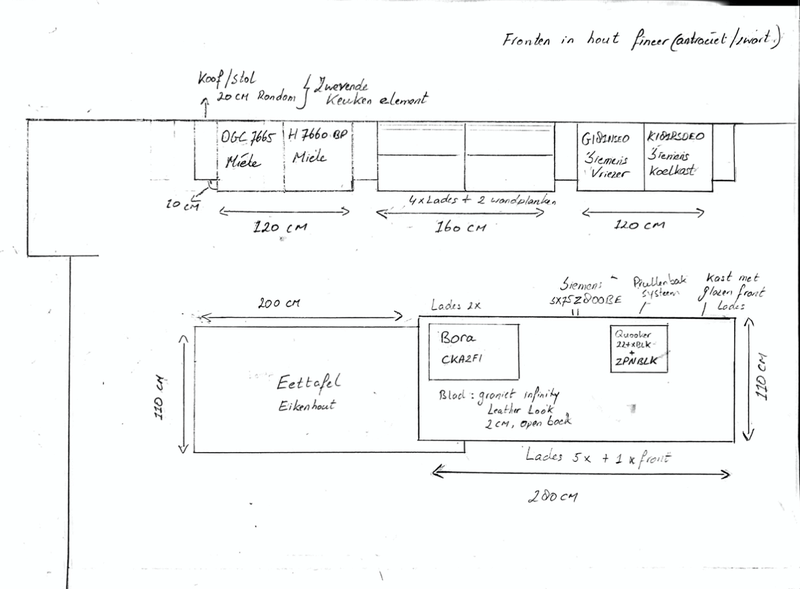 Fronten in hout fineer (antraciet/zwart.)
Koof/stol
20 CM Rondom
Zwevende
Keuken element
OGC 7665
Miele
H 7660 BP
Miele
GI81NSEO
Siemens
Vriezer
KI81RSDEO
Siemens
Koelkast
10 CM
120 CM
4x Lades + 2 wandplanken
160 CM
120 CM
200 CM
Lades 2x
Siemens
SX75Z800BE
Prullenbak
systeem
Kast met
glazen front
Lades
110 CM
Eettafel
Eikenhout
Bora
CKA2FI
Quooker
22+XBLK
+
ZPNBLK
Blad : graniet infinity
Leather Look
2 CM, open boek
110 CM
Lades 5x + 1 x front
280 CM